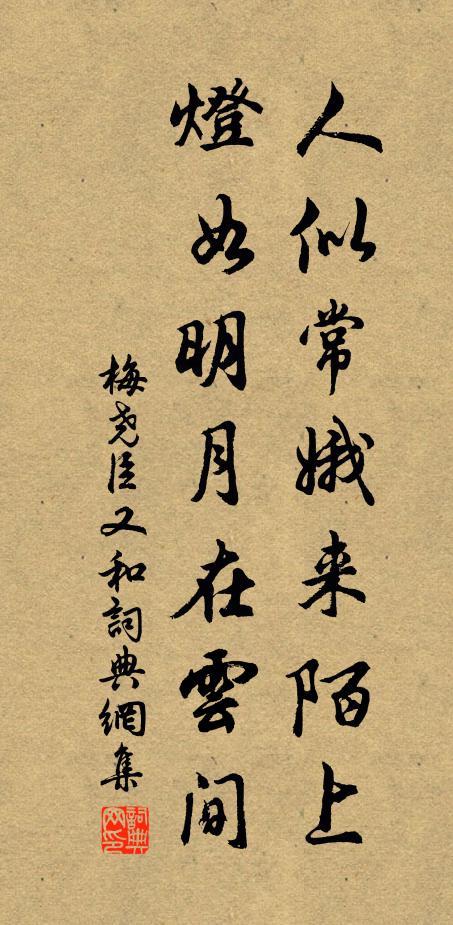 人似常娥来陌上
燈如明月在雲間
梅堯臣又和詞典網集
詞典網印